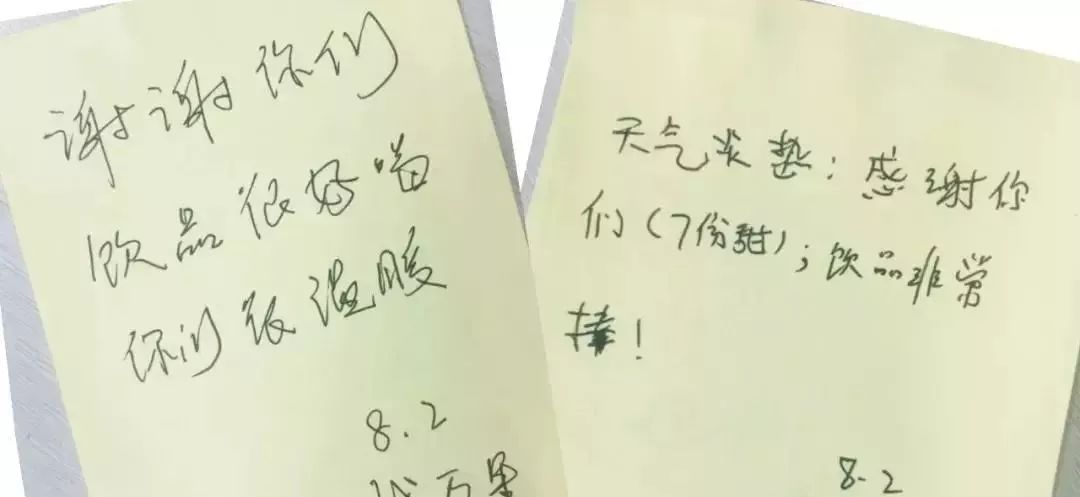 谢谢你们
饮品很好喝
你们很温暖
8.2
天气炎热：感谢你
们（7份甜）；饮品非常
棒！
8.2